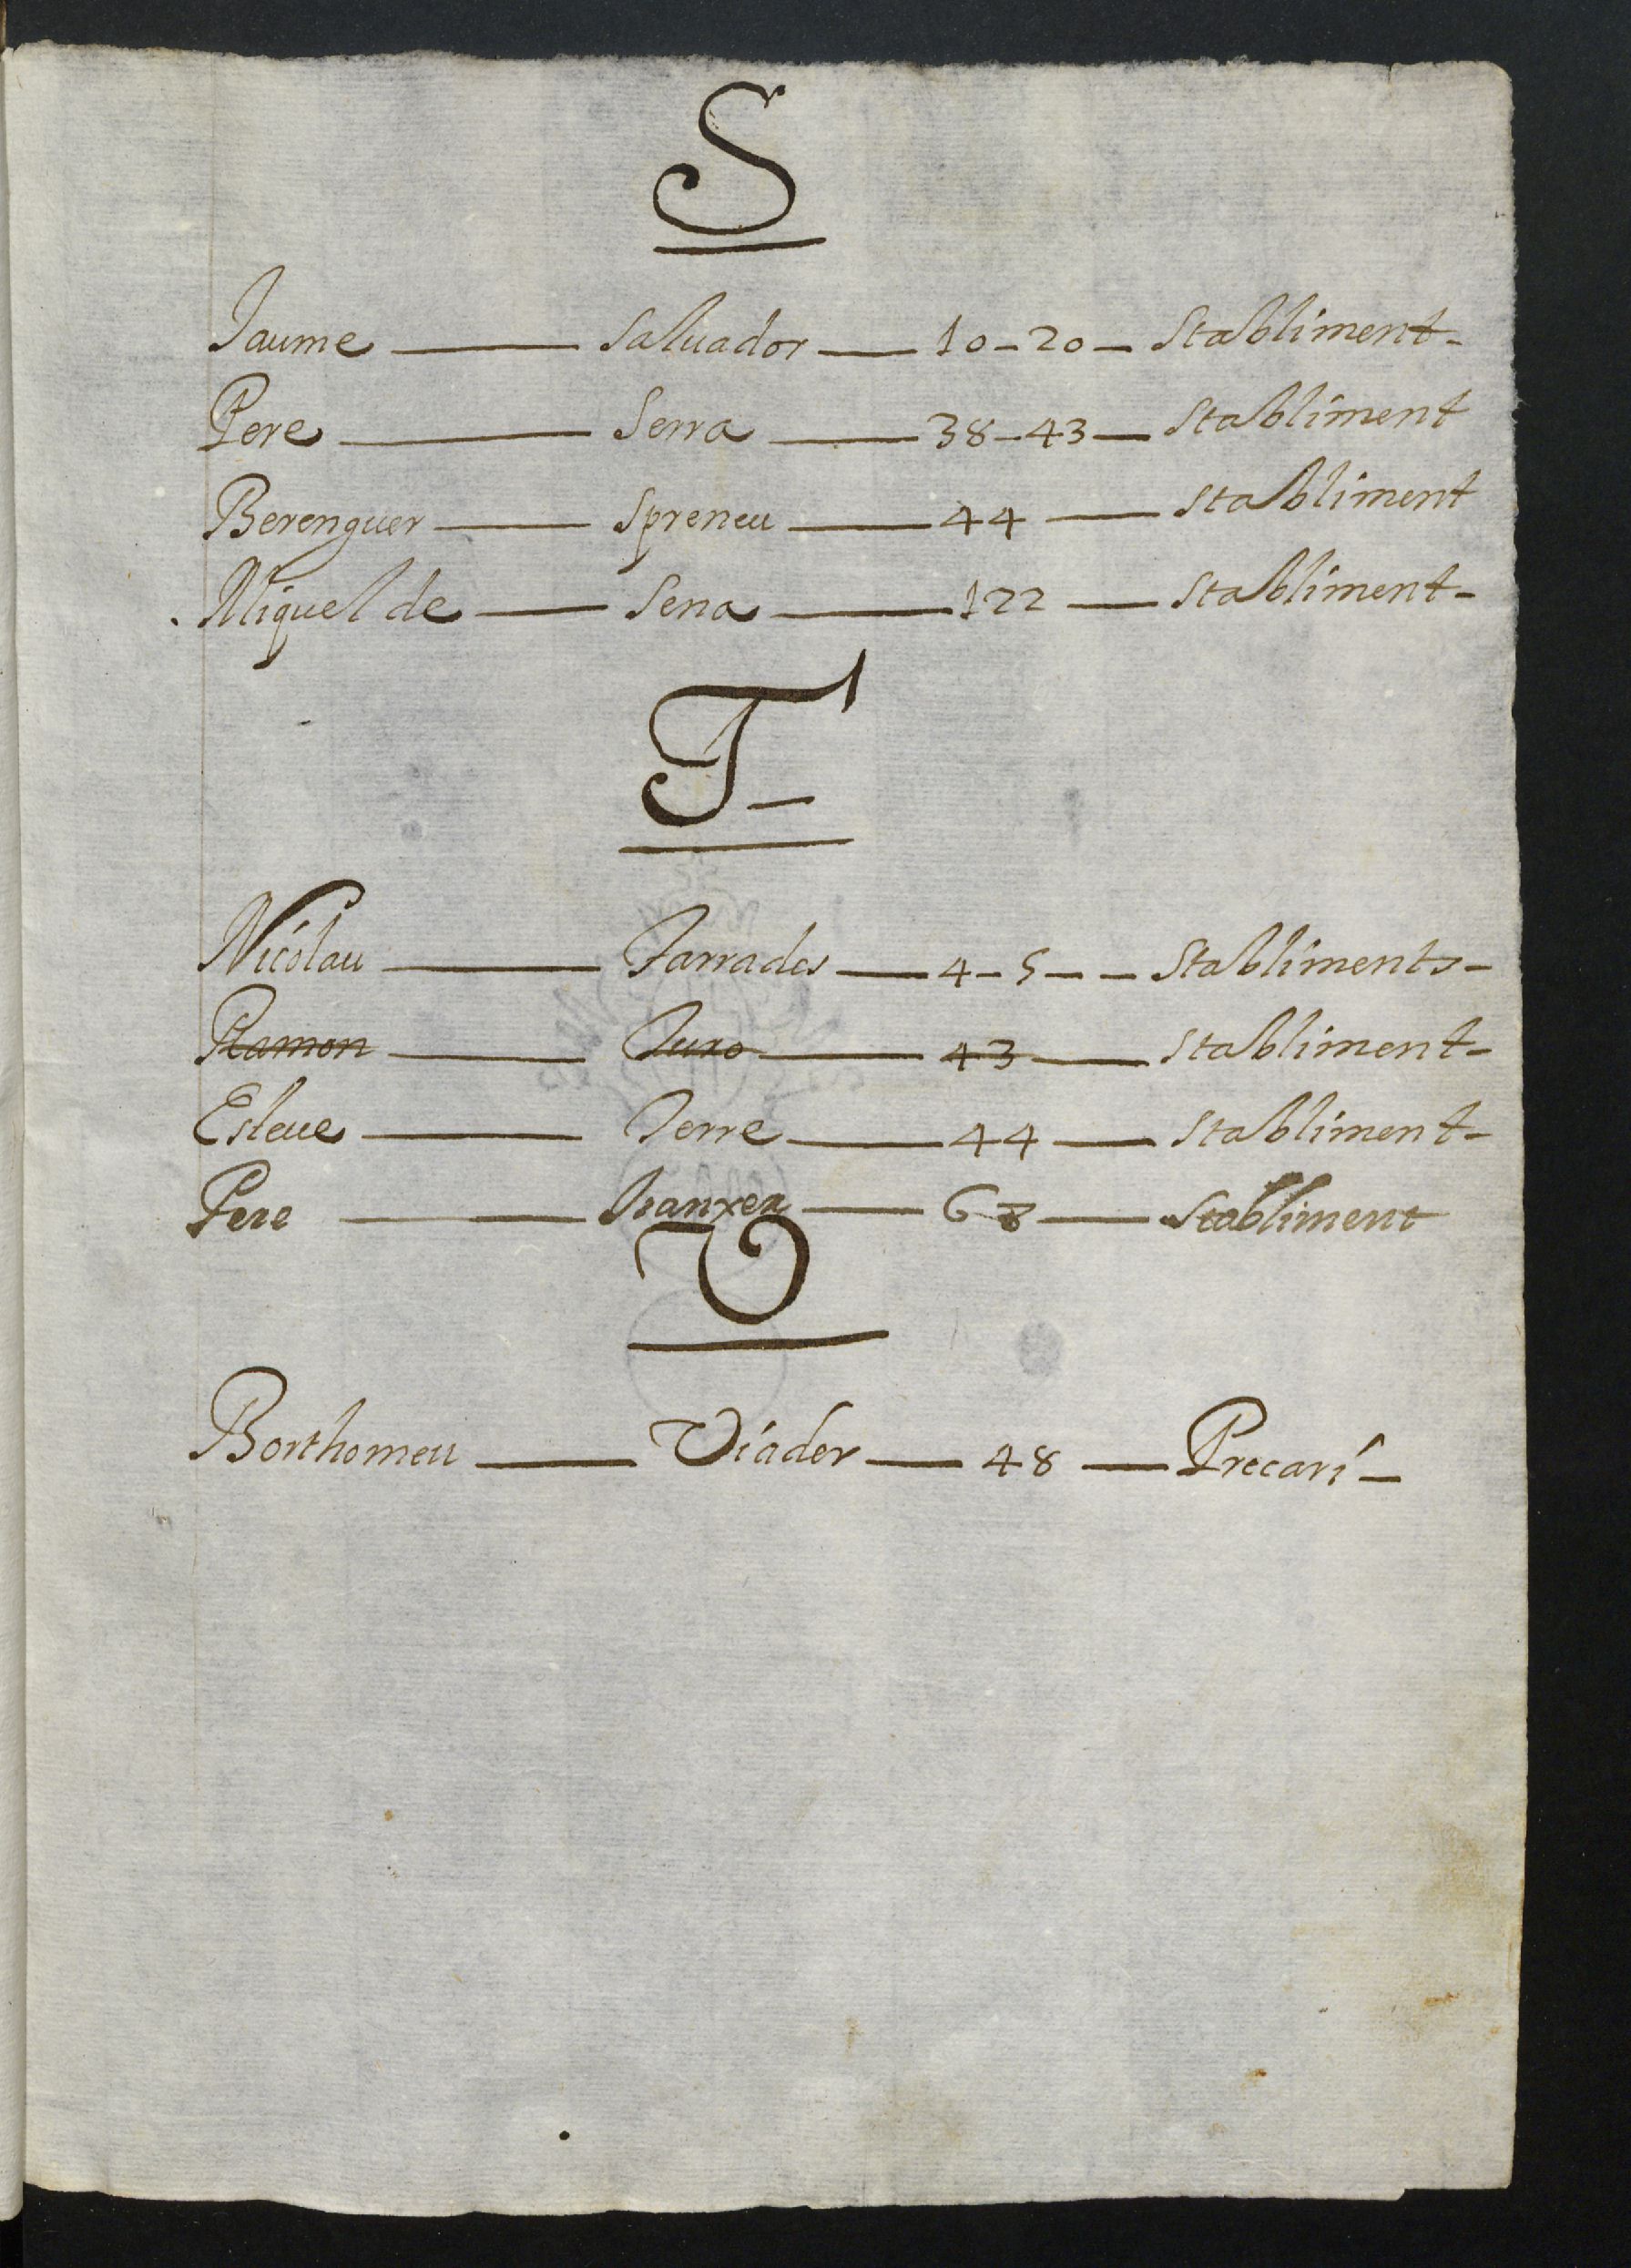 S
Jaume — Saluador — 10 - 20 — Stabliment -
Pere — Serra — 38 - 43 — Stabliment
Berenguer — Spreneu — 44 — Stabliment
Miquel de — Sena — 122 — Stabliment -
T
Nicolau — Tarrades — 4 - 5 - - Stabliments -
Ramon — Turo — 43 — Stabliment -
Esteue — Terre — 44 — Stabliment -
Pere — Tranxer — 68 — Stabliment
V
Borthomeu — Viader — 48 — Precari -